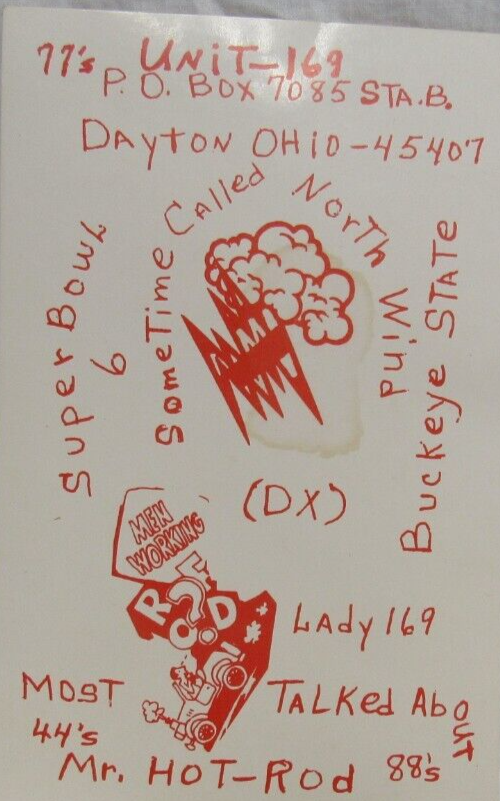 77's UNiT-169
P.O. BOX 7085 STA.B.
DAyTON OHiO-45407
Super Bowl
6
SomeTime Called NorTh Wind
Buckeye STATE
(DX)
MEN
WORKING
LAdy 169
MOST TALKed About
44's
Mr. HOT-Rod 88's